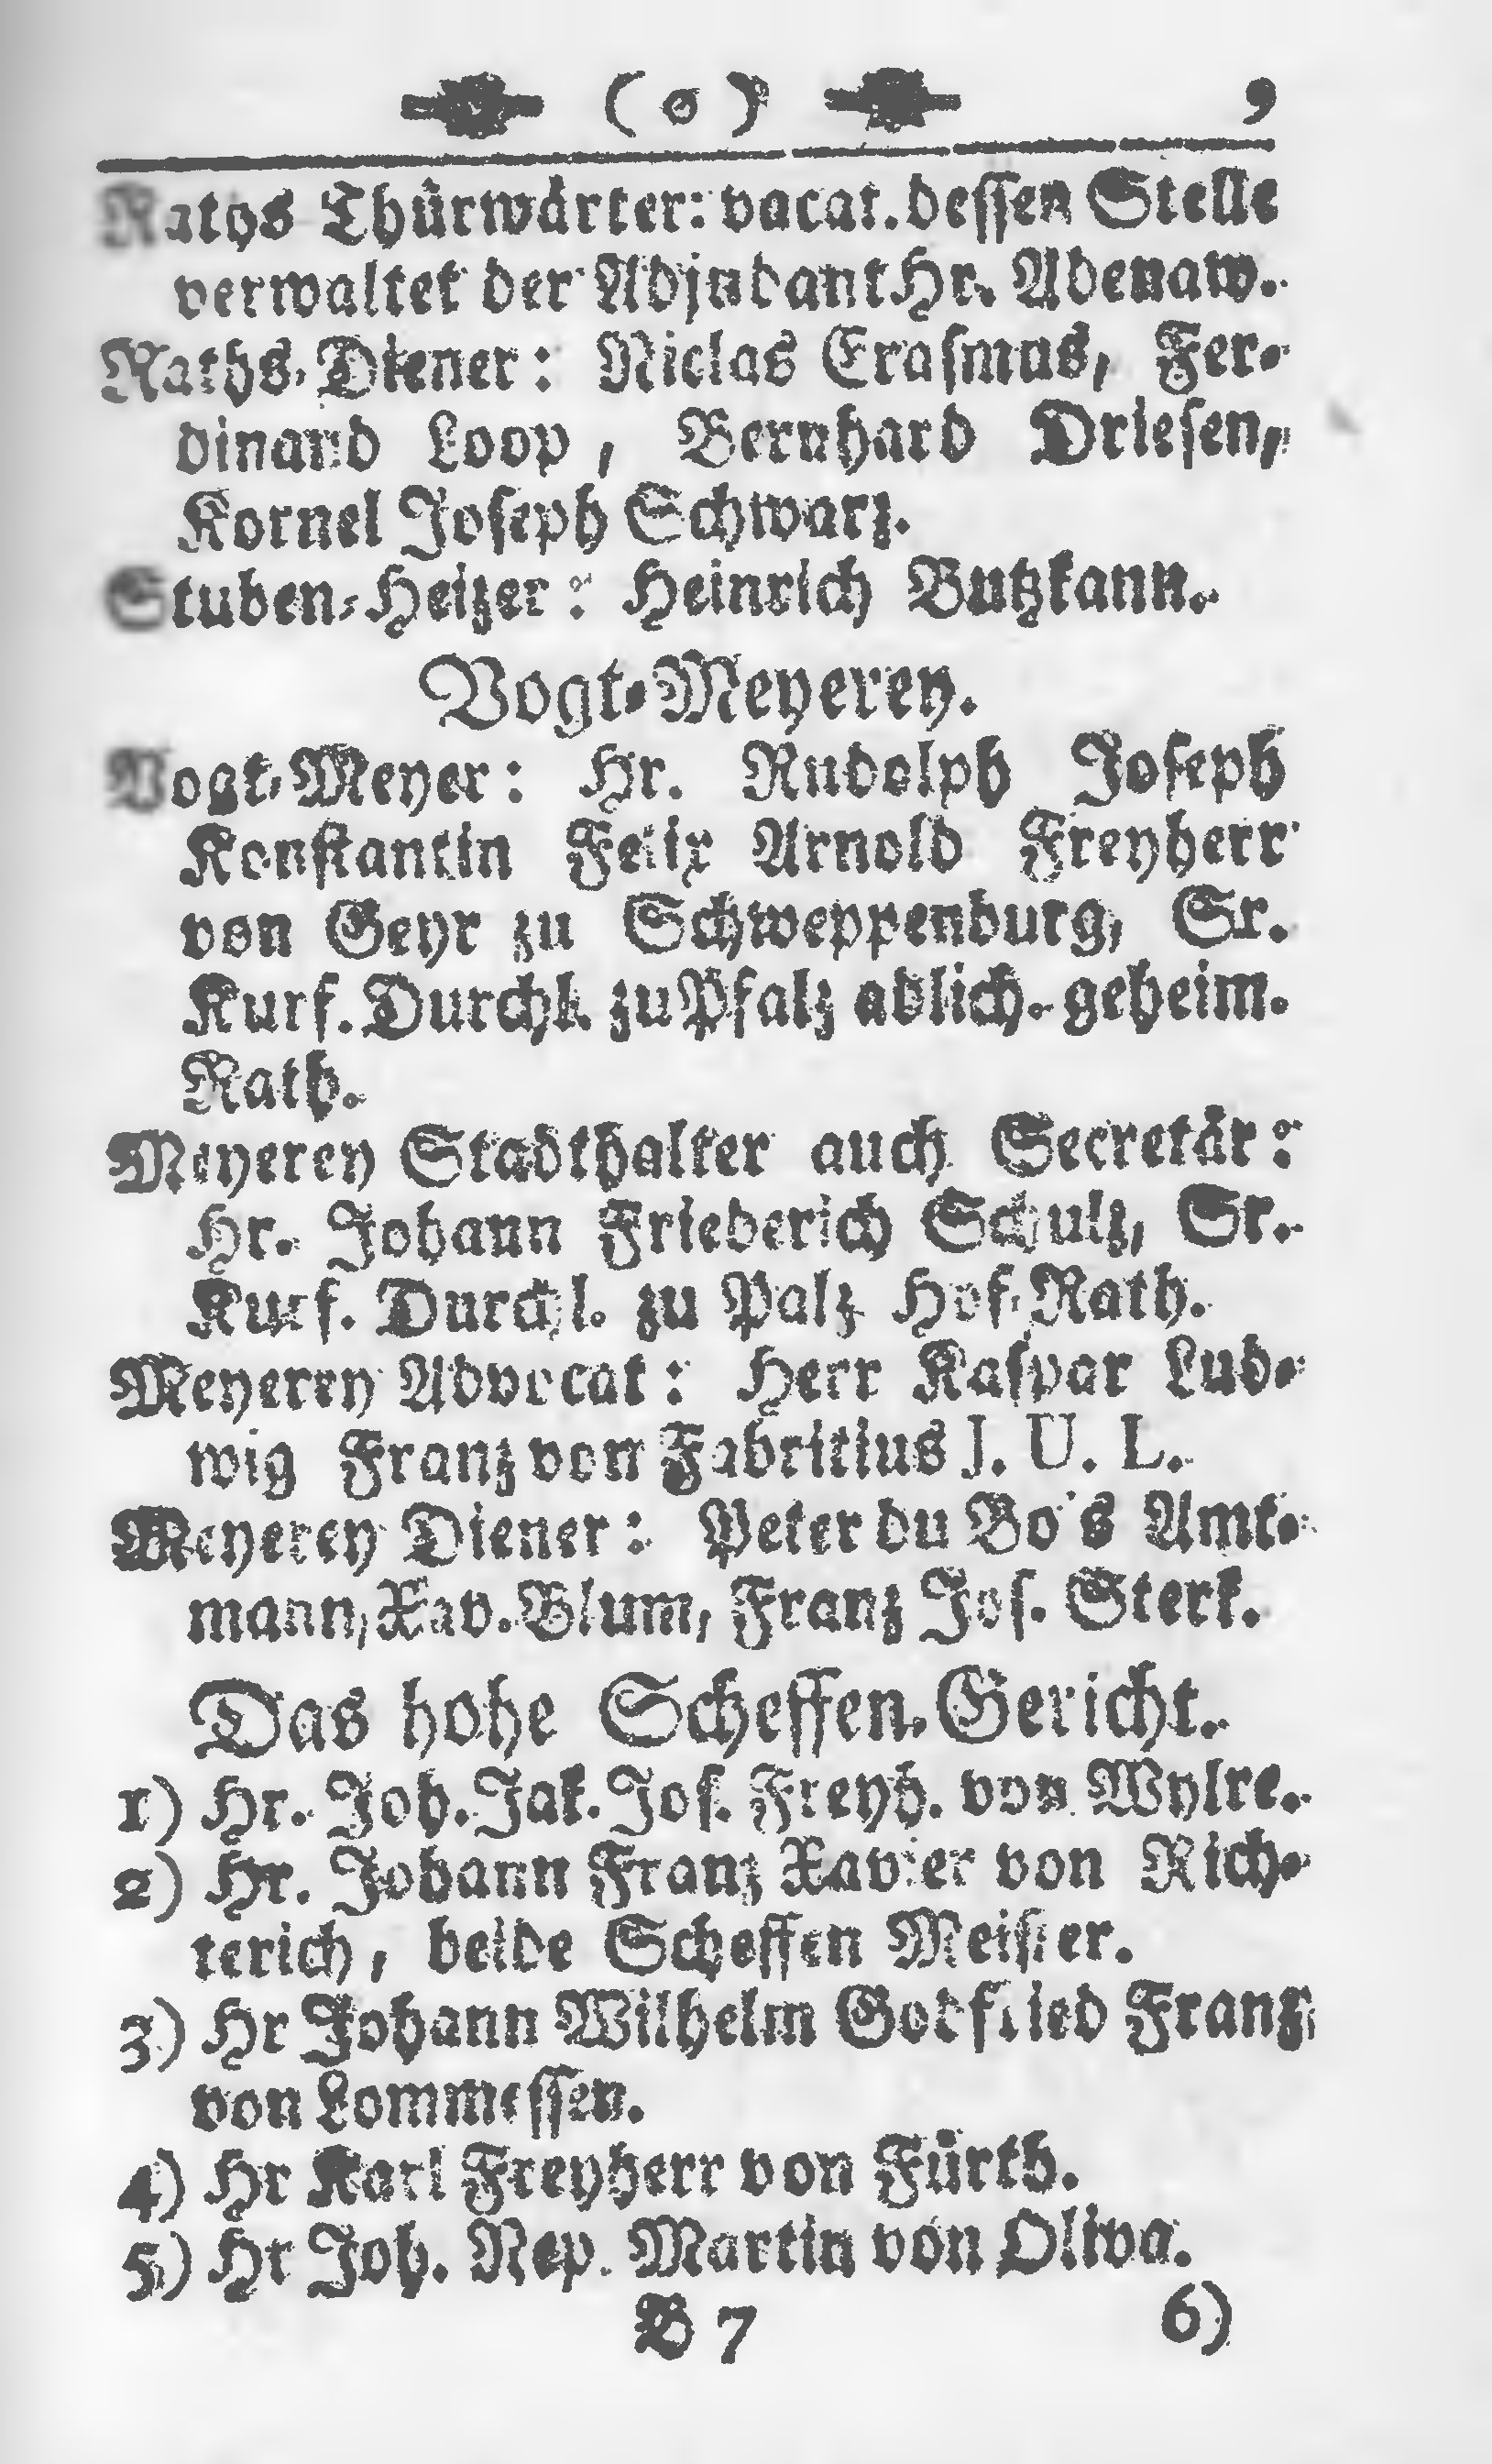 ( o ) 9
Raths Thürwärter: vacat. dessen Stelle
verwaltet der Adjudant Hr. Adenaw.
Raths-Diener: Niclas Erasmus, Fer-
dinand Loop, Bernhard Driesen,
Kornel Joseph Schwarz.
Stuben-Heitzer: Heinrich Butzkann.
Vogt-Meyerey.
Vogt-Meyer: Hr. Rudolph Joseph
Konstantin Felix Arnold Freyherr
von Geyr zu Schweppenburg, Sr.
Kurf. Durchl. zu Pfalz adlich. geheim.
Rath.
Meyerey Stadthalter auch Secretär:
Hr. Johann Friederich Schulz, Sr.
Kurf. Durchl. zu Palz Hof-Rath.
Meyerey Advocat: Herr Kaspar Lud-
wig Franz von Fabritius J. U. L.
Meyerey Diener: Peter du Bois Amt-
mann, Xav. Blum, Franz Jos. Sterk.
Das hohe Scheffen-Gericht.
1) Hr. Joh. Jak. Jos. Freyh. von Wylre.
2) Hr. Johann Franz Xavier von Rich-
terich, beide Scheffen Meister.
3) Hr Johann Wilhelm Godfried Franz
von Lommessen.
4) Hr Karl Freyherr von Fürth.
5) Hr Joh. Nep. Martin von Oliva.
B 7 6)